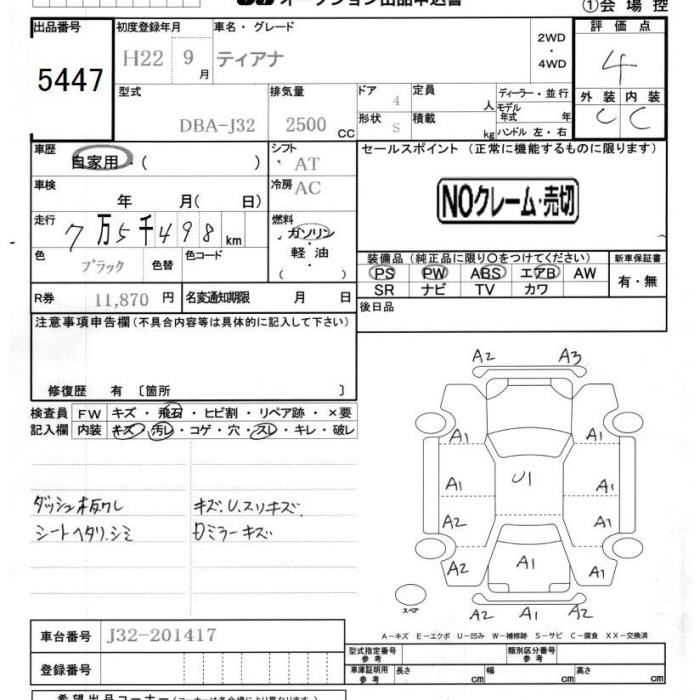 オークション出品申込書
①会場控
出品番号 初度登録年月 車名・グレード 評価点
5447 H22 9月 ティアナ 2WD・4WD 4
型式 排気量 ドア 定員 ディーラー・並行 外装 内装
DBA-J32 2500 CC 4 人 モデル年式 年 C C
形状 S 積載 kg ハンドル 左・右
車歴 シフト セールスポイント (正常に機能するものに限ります)
自家用・( ) AT
車検 冷房 AC
年 月( 日) NOクレーム・売切
走行 燃料
7万5千498km ガソリン・軽油 ( )
色 色替 色コード 装備品 (純正品に限り○をつけてください) 新車保証書
ブラック PS PW ABS エアB AW 有・無
SR ナビ TV カワ
R券 11,870円 名変通知期限 月 日 後日品
注意事項申告欄(不具合内容等は具体的に記入して下さい)
修復歴 有 〔箇所 〕
検査員 FW キズ・飛石・ヒビ割・リペア跡・×要
記入欄 内装 キズ・汚レ・コゲ・穴・スレ・キレ・破レ
ダッシュ板ワレ キズ.U.スリキズ
シートヘタリ.シミ ミラーキズ
A2 A3
A1 A1
U1
A1 A1
A2 A1
A2 A1 A2
スペア
A2 A1
A-キズ E-エクボ U-凹み W-補修跡 S-サビ C-腐食 XX-交換済
車台番号 J32-201417
登録番号
型式指定番号 参考 類別区分番号 参考
車庫証明用 参考 長さ cm 幅 cm 高さ cm
希望出品コーナー(コーナーは各会場により異なります)